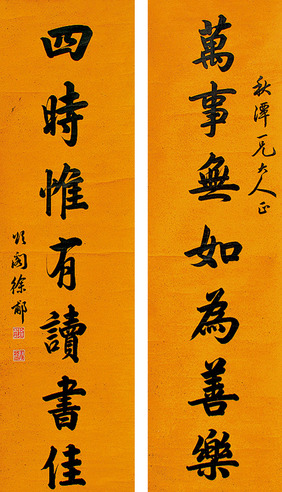 萬事無如為善樂
秋潭一兄大人正
四時惟有讀書佳
頌閣徐郙